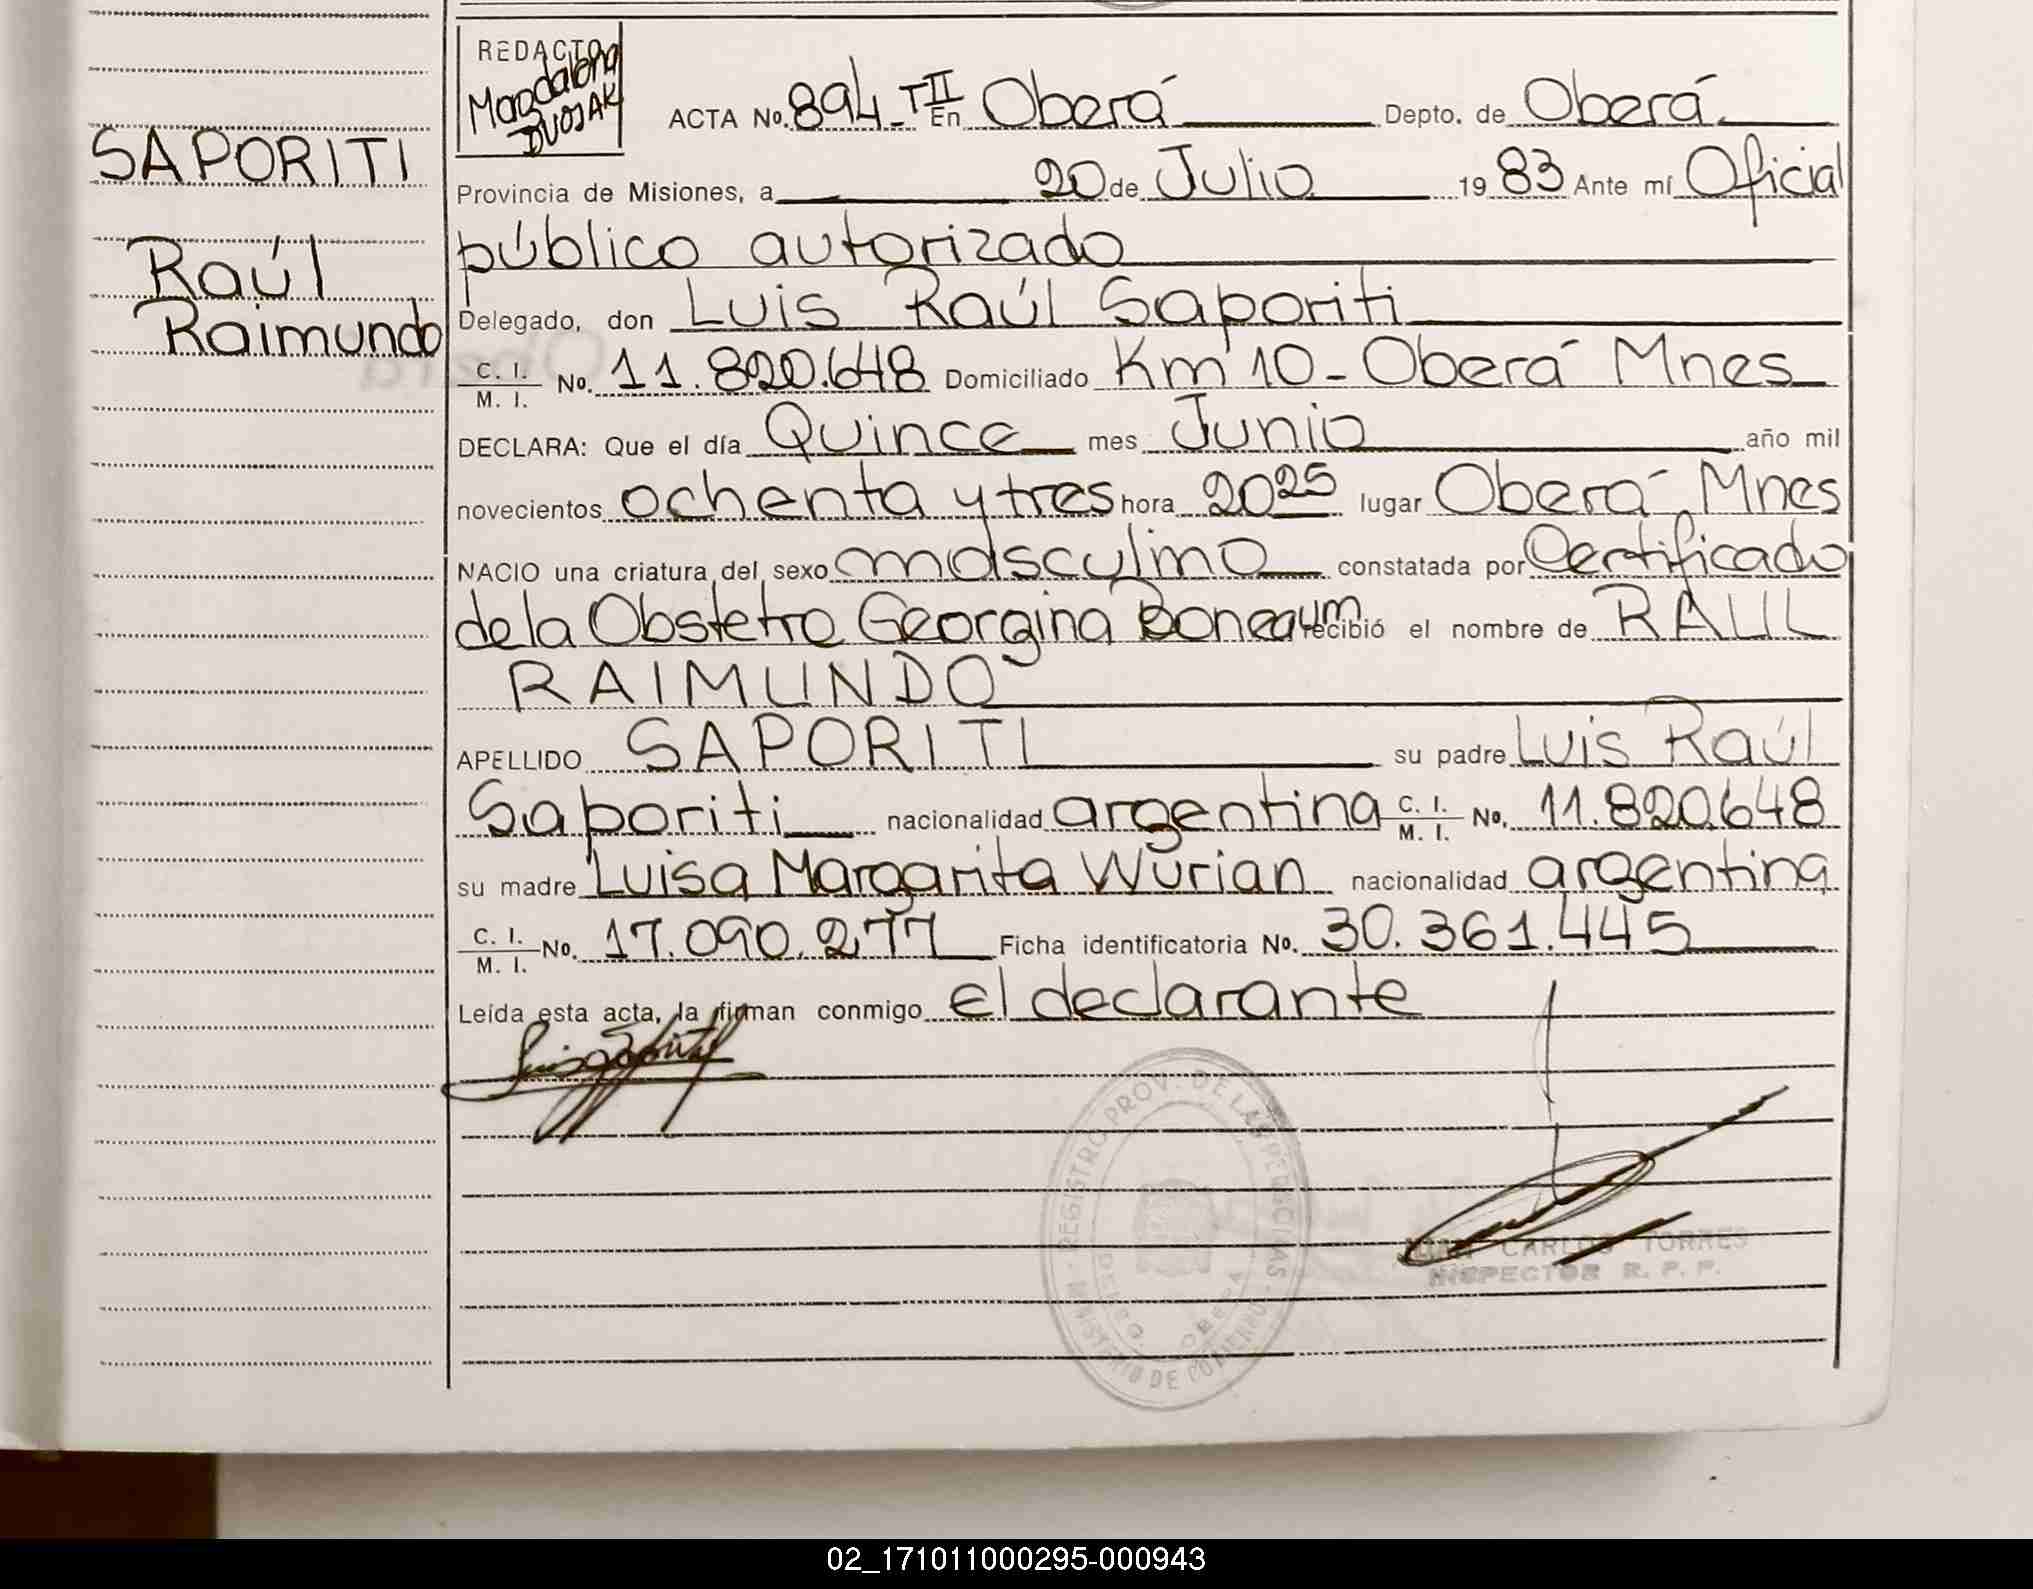 REDACTO
Magdalena
DVOJAK
ACTA No. 894-TII En Oberá Depto. de Oberá
SAPORITI
Provincia de Misiones, a 20 de Julio 1983 Ante mí Oficial
público autorizado
Raúl
Raimundo
Delegado, don Luis Raúl Saporiti
C. I. M. I. No. 11.820.648 Domiciliado Km 10 - Oberá Mnes
DECLARA: Que el día Quince mes Junio año mil
novecientos ochenta y tres hora 20 25 lugar Oberá Mnes
NACIO una criatura del sexo masculino constatada por Certificado
de la Obstetra Georgina Boneaum recibió el nombre de RAUL
RAIMUNDO
APELLIDO SAPORITI su padre Luis Raúl
Saporiti nacionalidad argentina C. I. M. I. No. 11.820.648
su madre Luisa Margarita Wurian nacionalidad argentina
C. I. M. I. No. 17.090.277 Ficha identificatoria No. 30.361.445
Leída esta acta, la firman conmigo el declarante
REGISTRO PROV. DE LAS PERSONAS
MINISTERIO DE GOBIERNO
OBERA
JUAN CARLOS TORRES
INSPECTOR R. P. P.
02_171011000295-000943